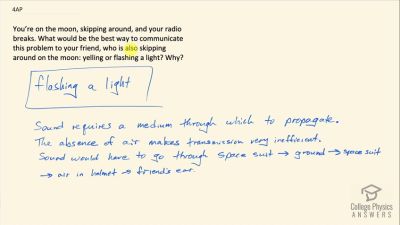 4AP
You're on the moon, skipping around, and your radio
breaks. What would be the best way to communicate
this problem to your friend, who is also skipping
around on the moon: yelling or flashing a light? Why?
flashing a light
Sound requires a medium through which to propagate.
The absence of air makes transmission very inefficient.
Sound would have to go through space suit → ground → space suit
→ air in helmet → friend's ear.
College Physics
ANSWERS